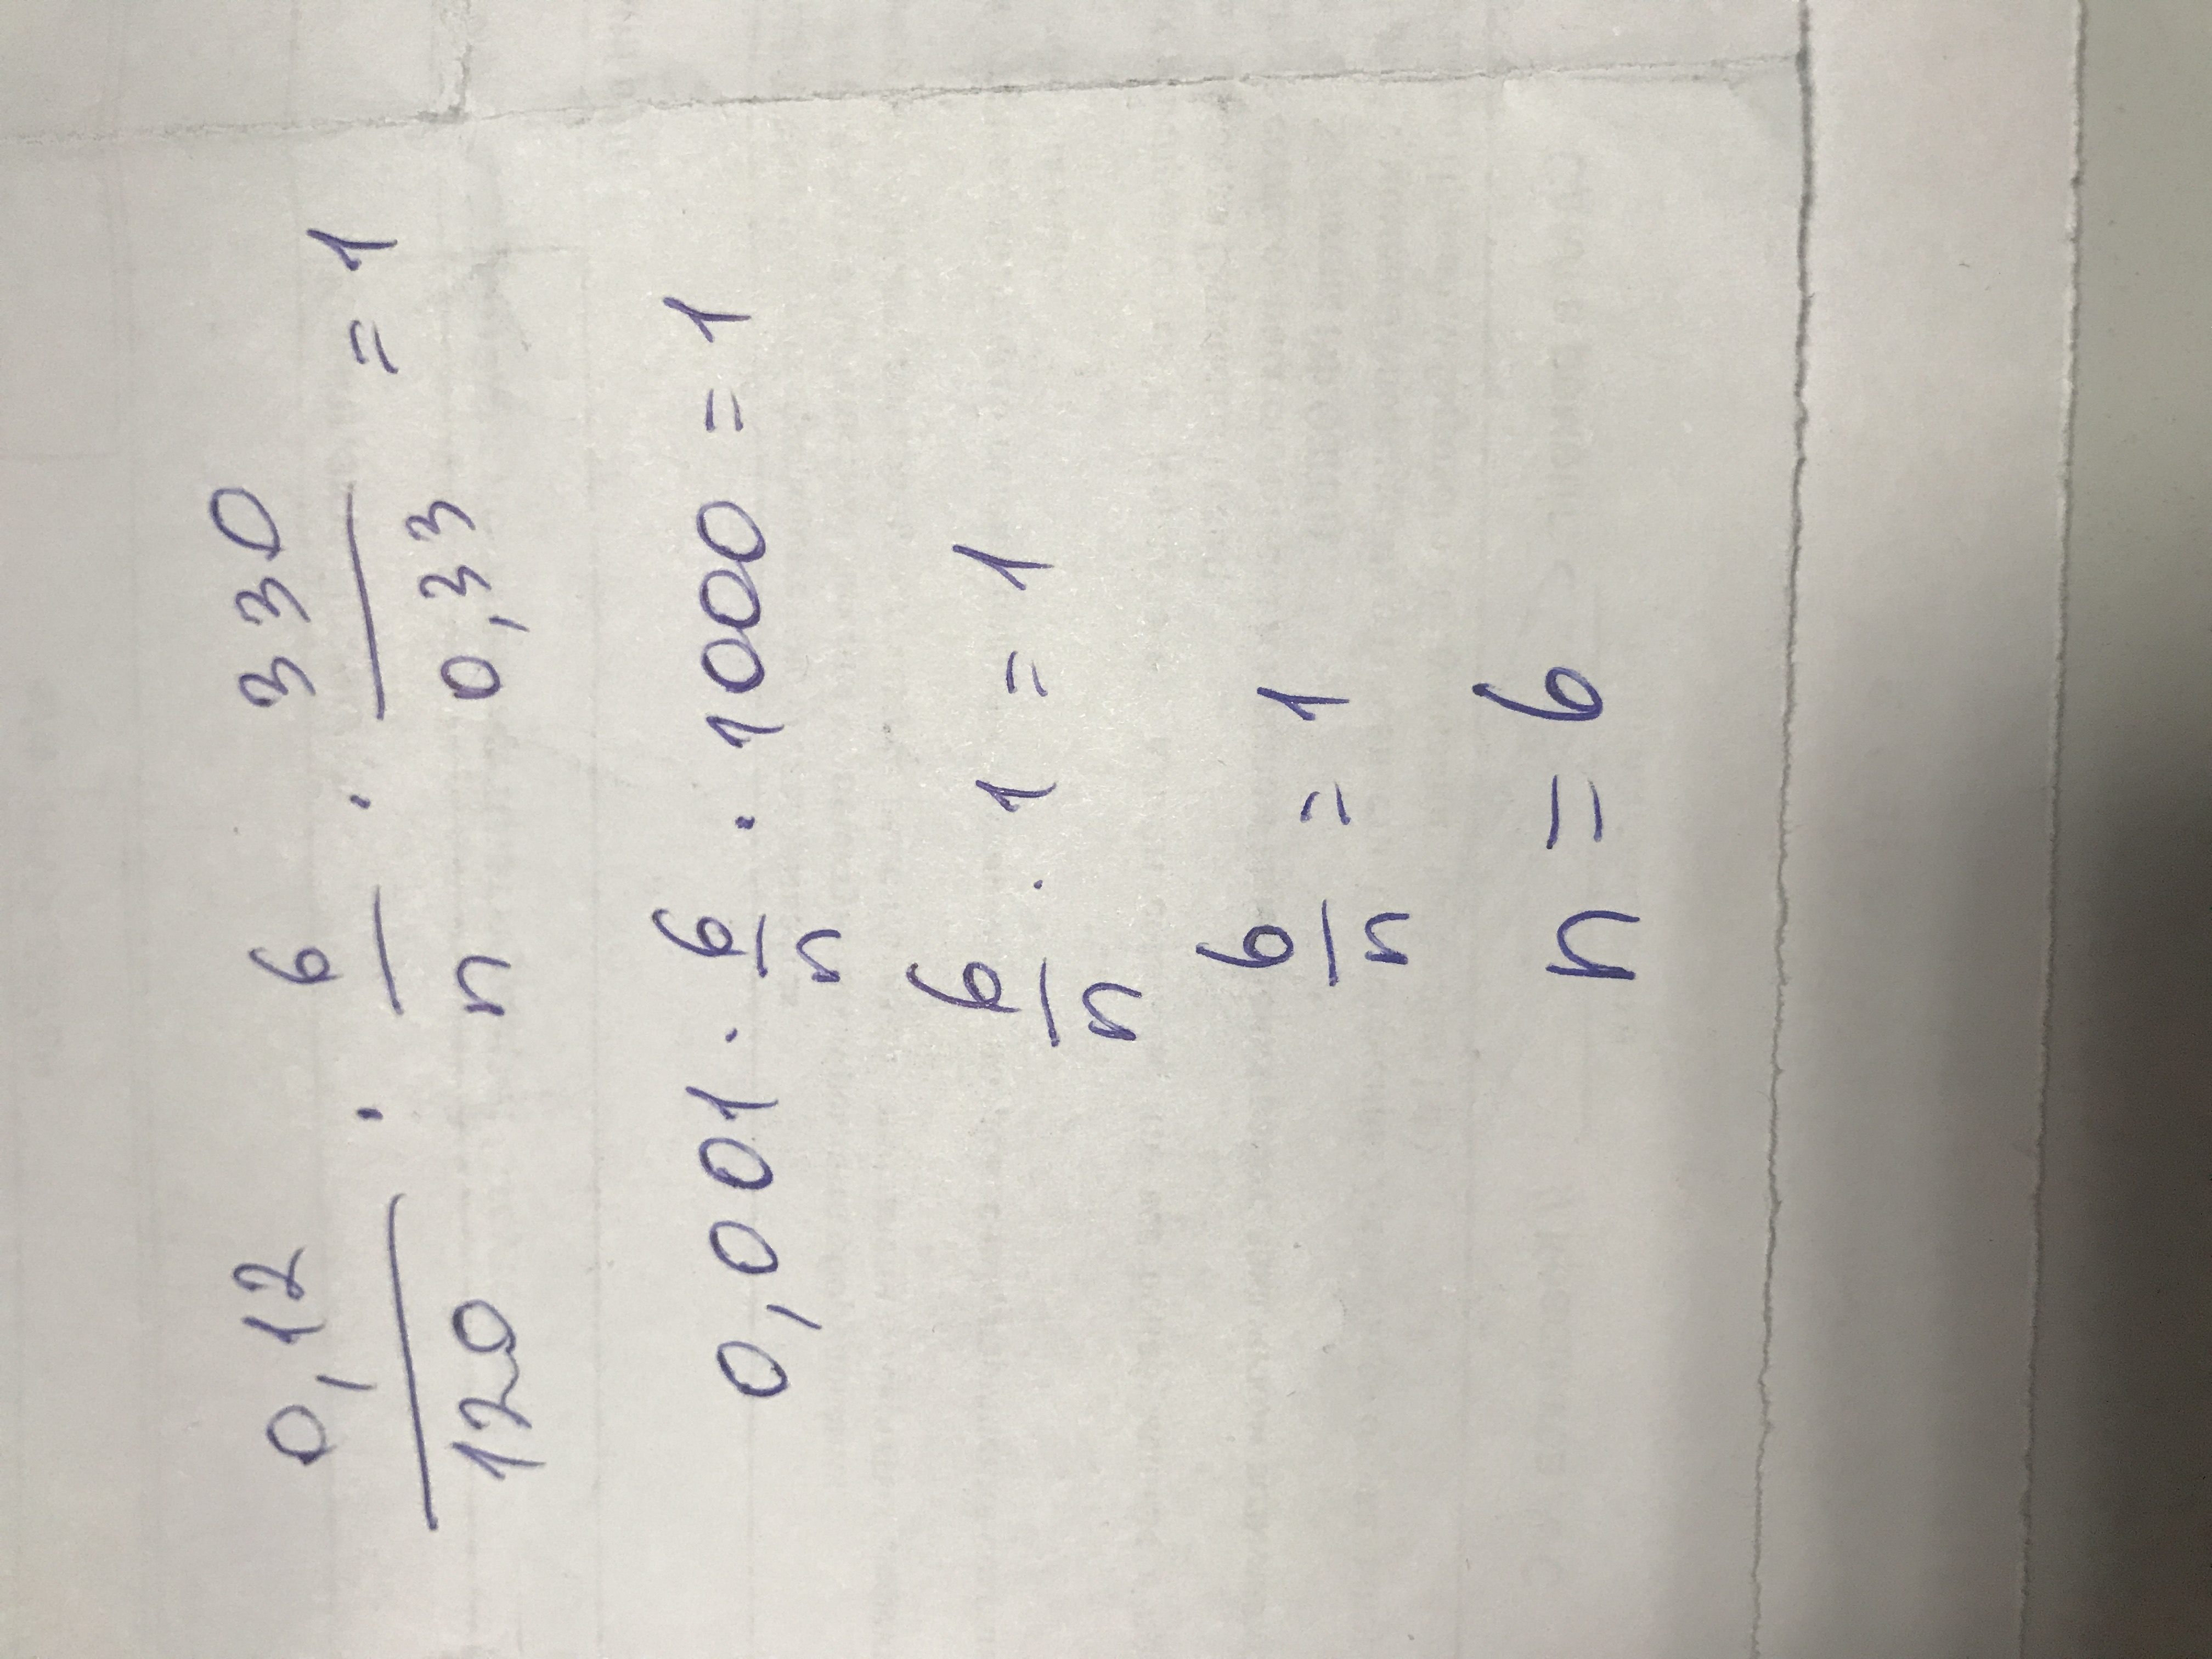 0,12/120 · 6/n · 330/0,33 = 1
0,001 · 6/n · 1000 = 1
6/n · 1 = 1
6/n = 1
n = 6